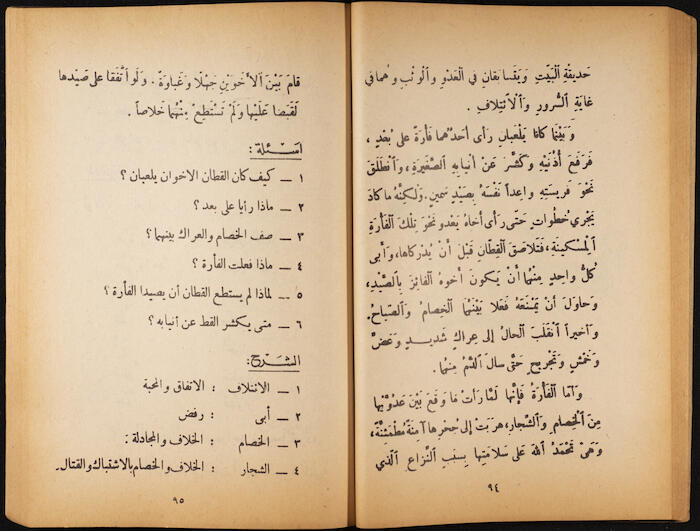 حَديقةِ الْبَيْتِ وَيَتَسابَقانِ في الْعَدْوِ وَالْوَثْبِ وَهُما في
غايَةِ السُّرورِ وَالْائْتِلافِ .
وَبَيْنَما كانا يَلْعَبانِ رَأى أَحَدُهُما فَأْرَةً على بُعْدٍ ،
فَرَفَعَ أُذُنَيْهِ وَكَشَّرَ عَنْ أَنْيابِهِ الصَّغيرَةِ، وَانْطَلَقَ
نَحْوَ فَريسَتِهِ واعِداً نَفْسَهُ بِصَيْدٍ سَمينٍ. وَلكِنَّهُ ما كادَ
يَجْري خُطُواتٍ حَتّى رَأى أَخاهُ يَعْدو نَحْوَ تِلْكَ الْفَأْرَةِ
الْمِسْكينَةِ، فَتَلاصَقَ الْقِطّانِ قَبْلَ أَنْ يُدْرِكاها، وَأَبى
كُلُّ واحِدٍ مِنْهُما أَنْ يَكونَ أَخوهُ الْفائِزَ بِالصَّيْدِ،
وَحاوَلَ أَنْ يَمْنَعَهُ فَعَلا بَيْنَهُما الْخِصامُ وَالصِّياحُ.
وَأَخيراً انْقَلَبَ الْحالُ إلى عِراكٍ شَديدٍ وَعَضٍّ
وَخَمْشٍ وَتَجْريحٍ حَتّى سالَ الدَّمُ مِنْهُما .
وَأَمّا الْفَأْرَةُ فَإِنَّها لَمّا رَأَتْ ما وَقَعَ بَيْنَ عَدُوَّيْها
مِنَ الْخِصامِ وَالشِّجارِ، هَرَبَتْ إلى جُحْرِها آمِنَةً مُطْمَئِنَّةً،
وَهْيَ تَحْمَدُ اللهَ على سَلامَتِها بِسَبَبِ النِّزاعِ الَّذي
٩٤
قامَ بَيْنَ الْأَخَوَيْنِ جَهْلًا وَغَباوَةً . وَلَوِ اتَّفَقا على صَيْدِها
لَقَبَضا عَلَيْها وَلَمْ تَسْتَطِعْ مِنْهُما خَلاصاً .
أسئلة :
١ ــ كيف كان القطان الاخوان يلعبان ؟
٢ ــ ماذا رأيا على بعد ؟
٣ ــ صف الخصام والعراك بينهما ؟
٤ ــ ماذا فعلت الفأرة ؟
٥ ــ لماذا لم يستطع القطان أن يصيدا الفأرة ؟
٦ ــ متى يكشر القط عن أنيابه ؟
الشرح :
١ ــ الائتلاف : الاتفاق والمحبة
٢ ــ أبى : رفض
٣ ــ الخصام : الخلاف والمجادلة .
٤ ــ الشجار : الخلاف والخصام بالاشتباك والقتال .
٩٥